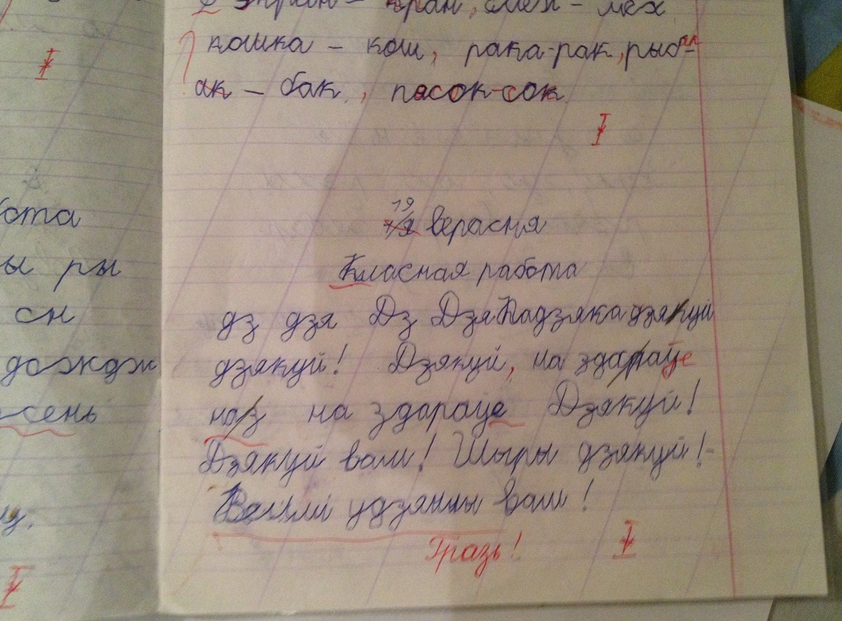 экран – кран, смех – мех
кошка – кош, рака-рак, рыб
ак – бак, пясок-сок
19
верасня
Класная работа
дз дзя Дз Дзя Кадзяка дзякуй
дзякуй! Дзякуй, на здароўе
наз на здароўе Дзякуй!
Дзякуй вам! Шыры дзякуй!
Вельмі удзячны вам!
Гразь!
ота
ы ры
сн
дождж
сень